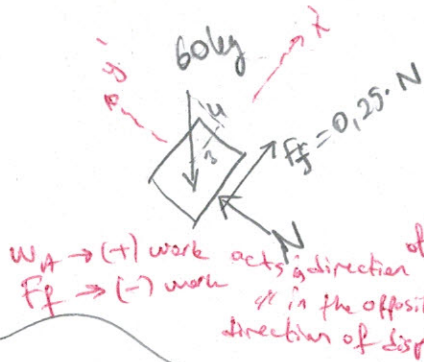 y'
60kg
x
4
3
Ff = 0,25. N
N
WA → (+) work acts direction of
Ff → (-) work " in the opposit
direction of disp